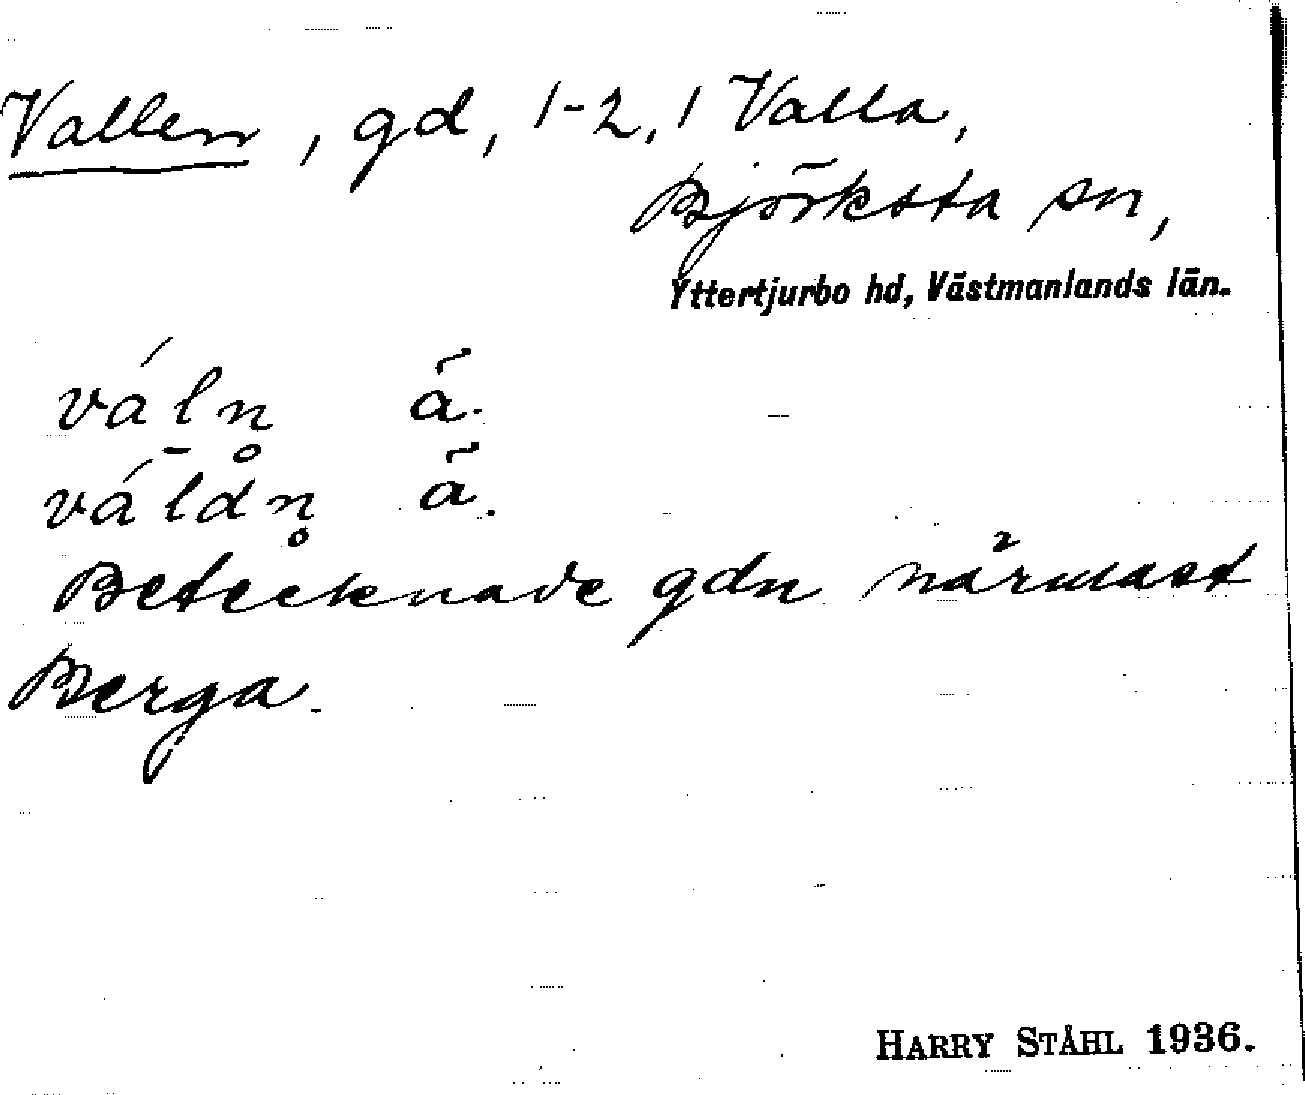 Vallen, gd, 1-2, 1 Valla,
Björksta sn,
Yttertjurbo hd, Västmanlands län.
váḻn̥ ä.
váldn̥ ä.
Betecknade gdn närmast
Berga.
HARRY STÅHL 1936.